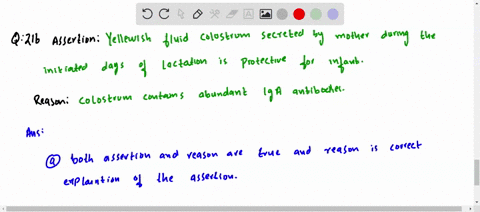 Q:216 Assertion: Yellewish fluid colostrum secreted by mother during the
initiated days of lactation is protective for infant.
Reason: colostrum contains abundant IgA antibodies.
Ans:
(a) both assertion and reason are true and reason is correct
explanation of the assertion.